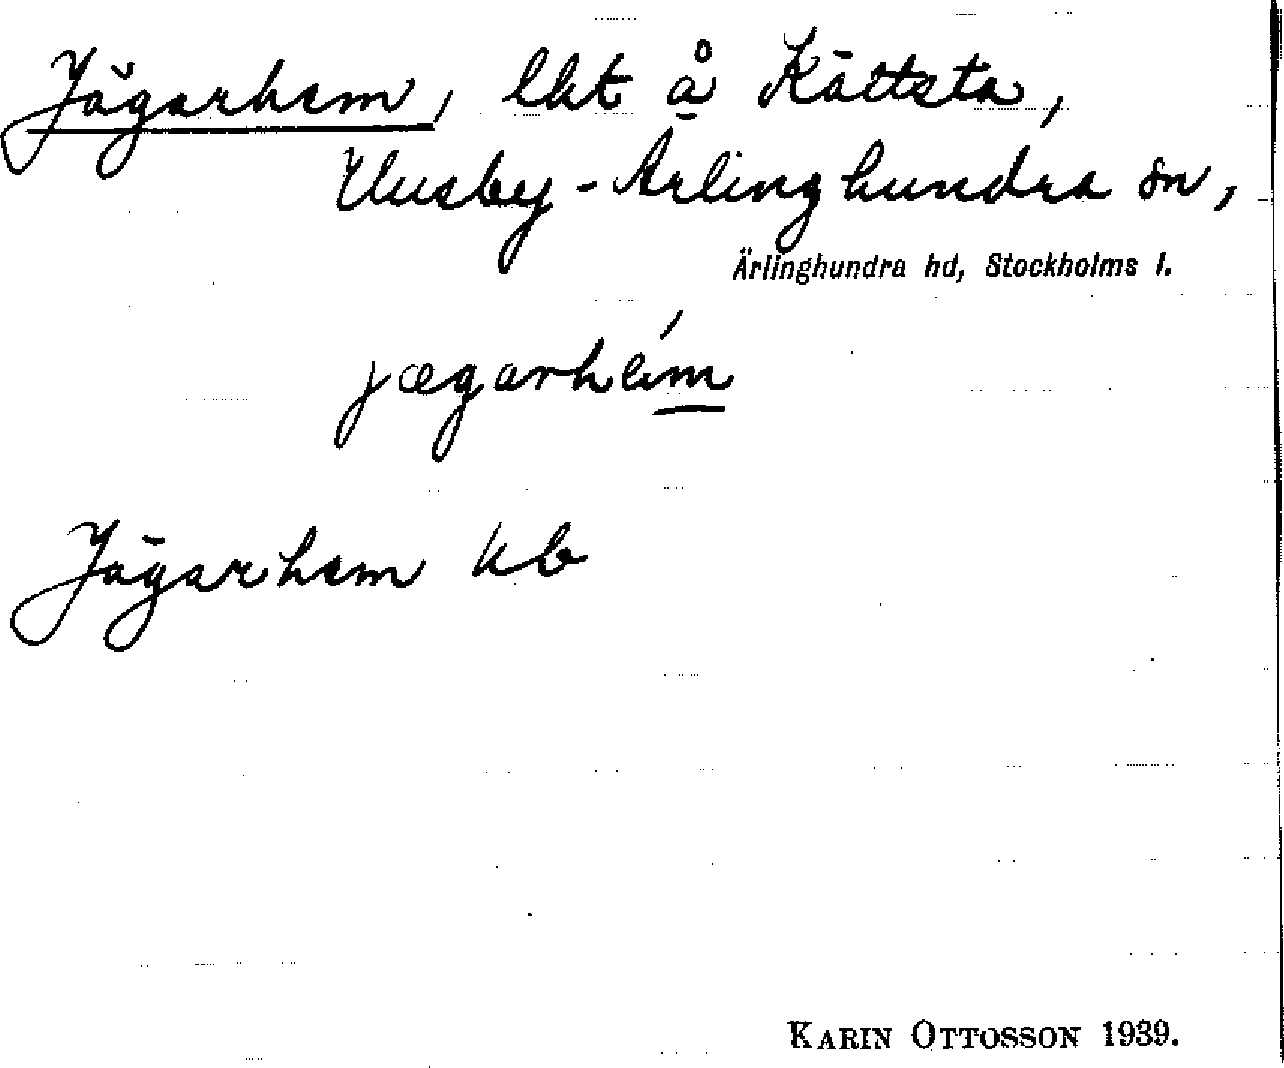 Jägarhem, lht å Kättsta,
Husby-Ärlinghundra sn,
Ärlinghundra hd, Stockholms l.
jægarhém
Jägarhem kb
KARIN OTTOSSON 1939.